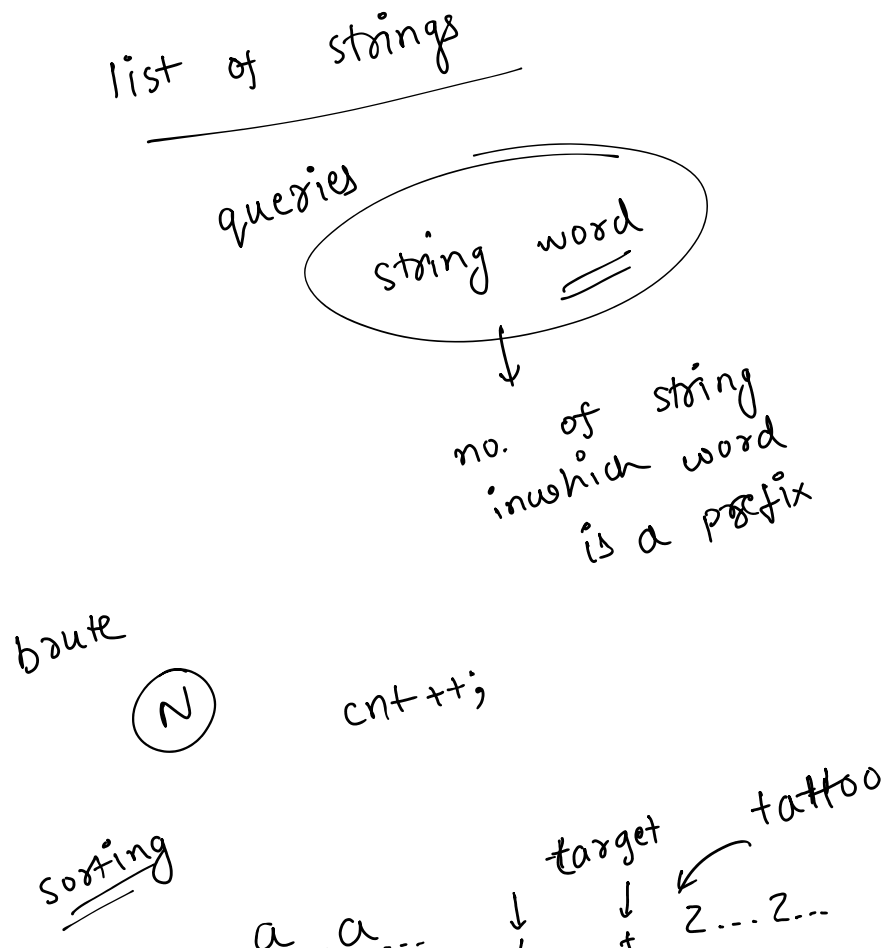 list of strings
queries
string word
no. of string
inwhich word
is a prefix
brute
N cnt++;
tattoo
target
sorting
a a... z...z...